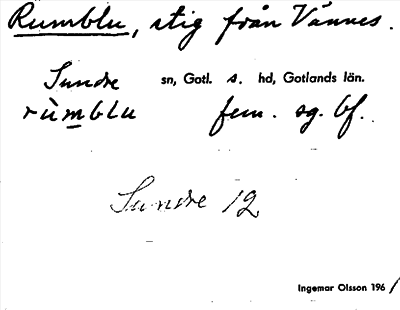 Rumblu, stig från Vännes.
Sundre sn, Gotl. s. hd, Gotlands län.
rùmblu fem. sg. bf.
Sundre 12
Ingemar Olsson 1961